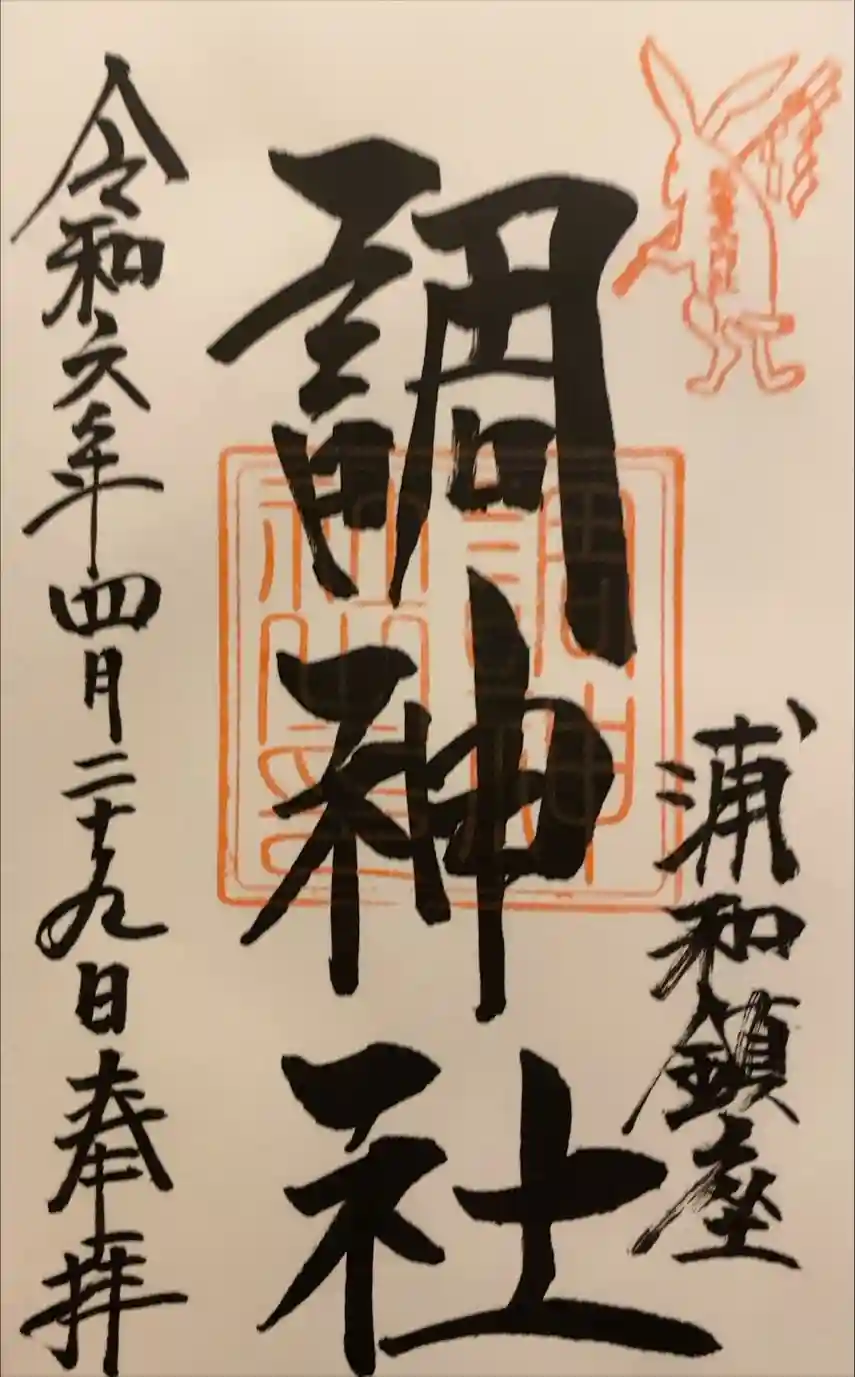 浦和鎮座
調神社
令和六年四月二十九日奉拝
調神社印